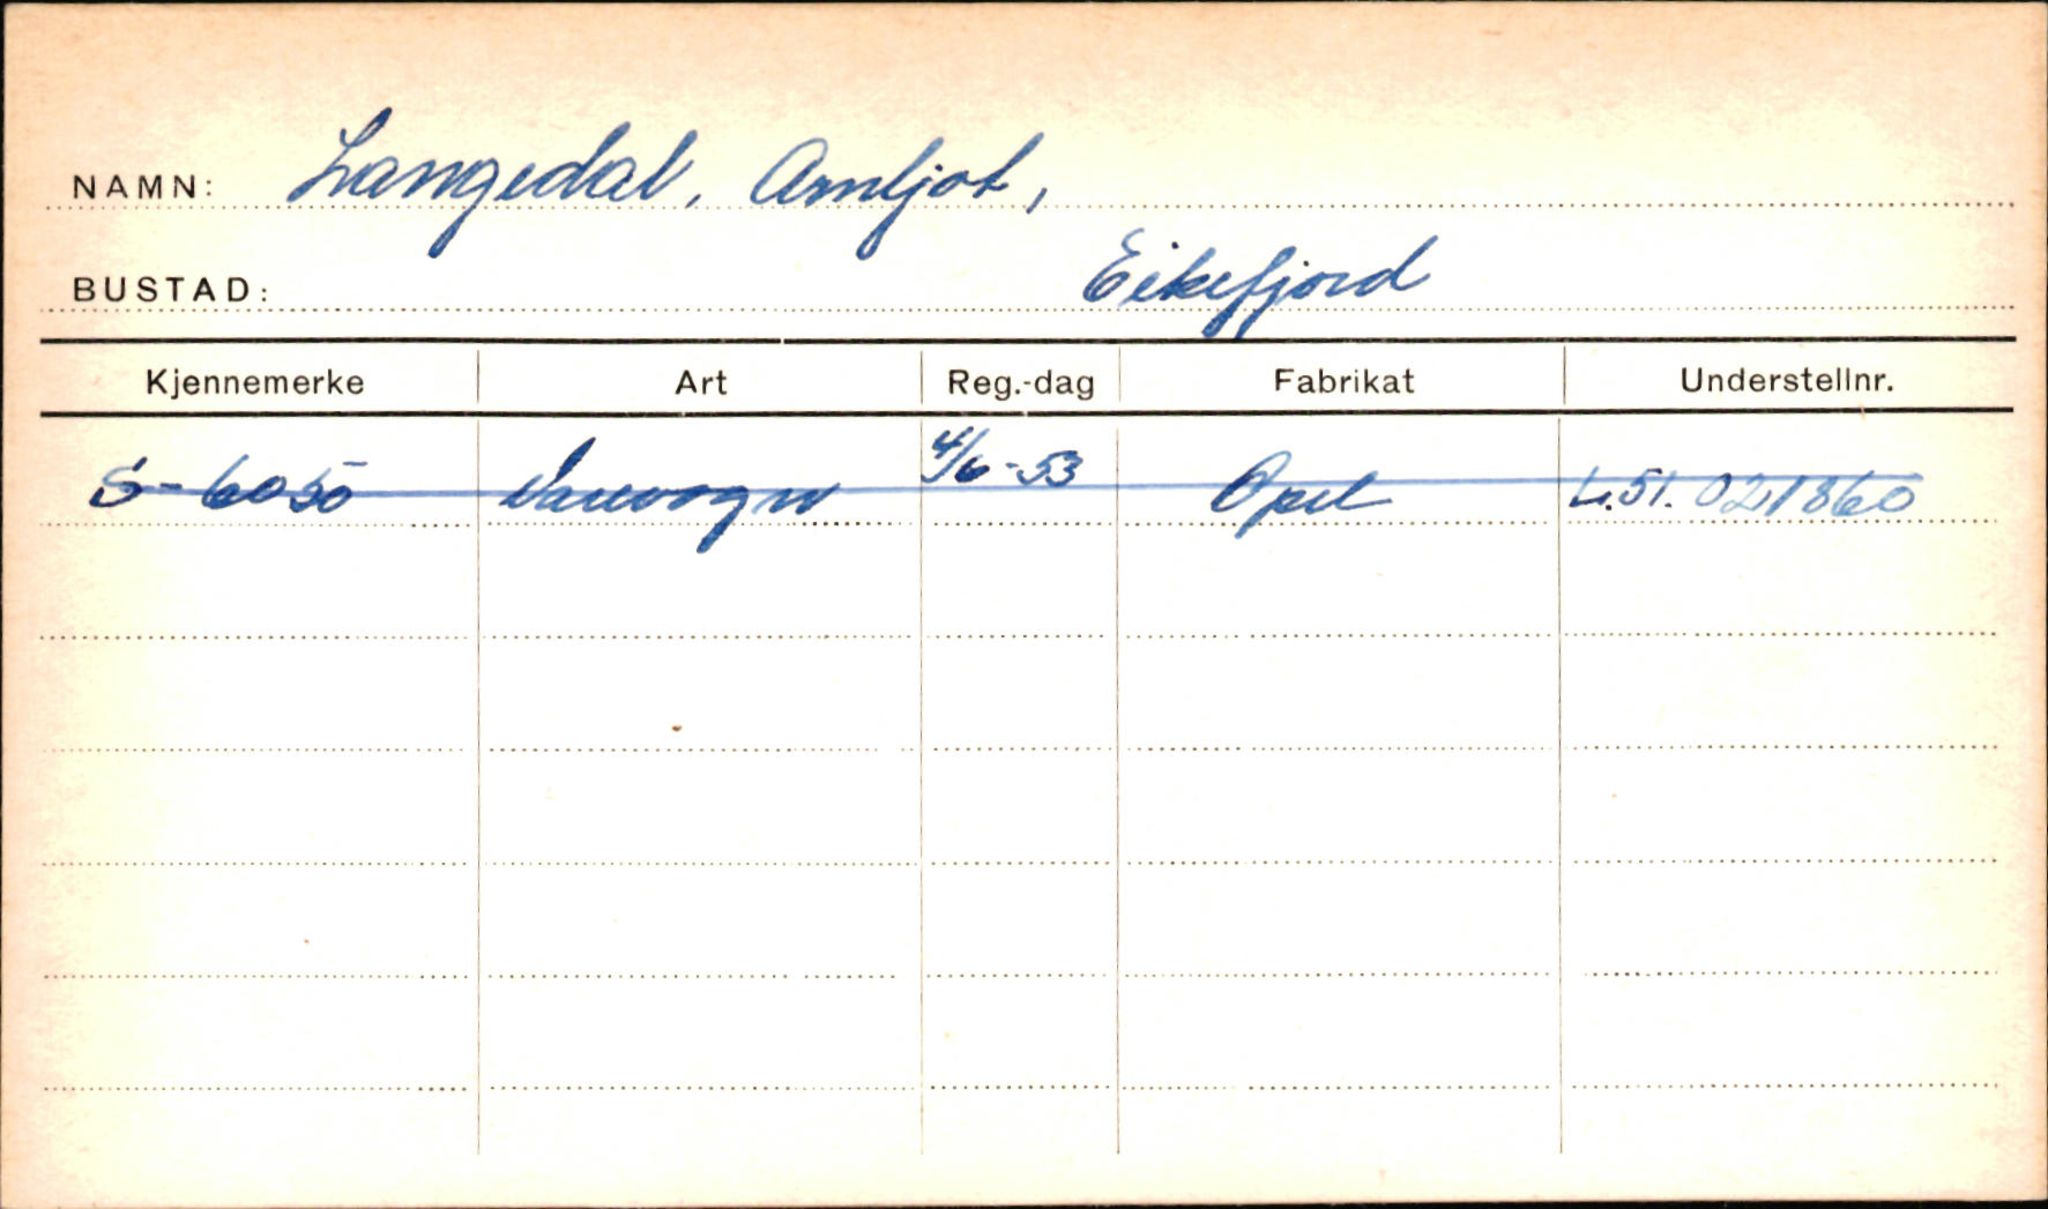 NAMN: Langedal, Arnljot,
BUSTAD: Eikefjord
Kjennemerke Art Reg.-dag Fabrikat Understellnr.
S-6050 Varevogn 4/6-53 Opel L.51.021860